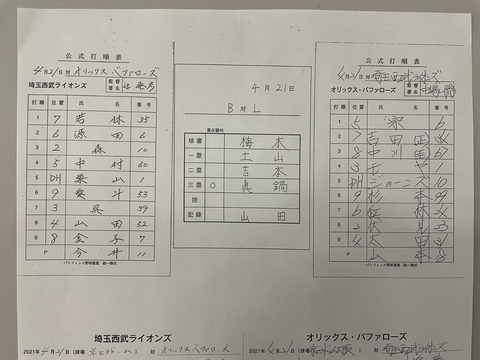 公式打順表
4月21日対オリックス・バファローズ
埼玉西武ライオンズ 監督署名
打順 位置 氏名 番号
1 7 若林 35
2 6 源田 6
3 2 森 10
4 5 中村 60
5 DH 栗山 1
6 9 愛斗 53
7 3 呉 39
8 4 山田 52
9 8 金子 7
P 今井 11
パシフィック野球連盟 統一様式
4月21日
B対L
責任審判
球審 梅木
一塁 土山
二塁 吉本
三塁 ○ 眞鍋
控
記録 山田
公式打順表
4月21日対埼玉西武ライオンズ
オリックス・バファローズ 監督署名
打順 位置 氏名 番号
1 5 宗 6
2 7 吉田正
3 8 中川圭 67
4 3 モヤ 1
5 DH ジョーンズ 10
6 9 杉本 99
7 6 紅林 24
8 2 伏見 23
9 4 太田 31
P 山本 18
パシフィック野球連盟 統一様式
埼玉西武ライオンズ
2021年4月21日(球場 京セラドーム) 対 オリックス・バファローズ
オリックス・バファローズ
2021年4月21日(球場 対 埼玉西武ライオンズ